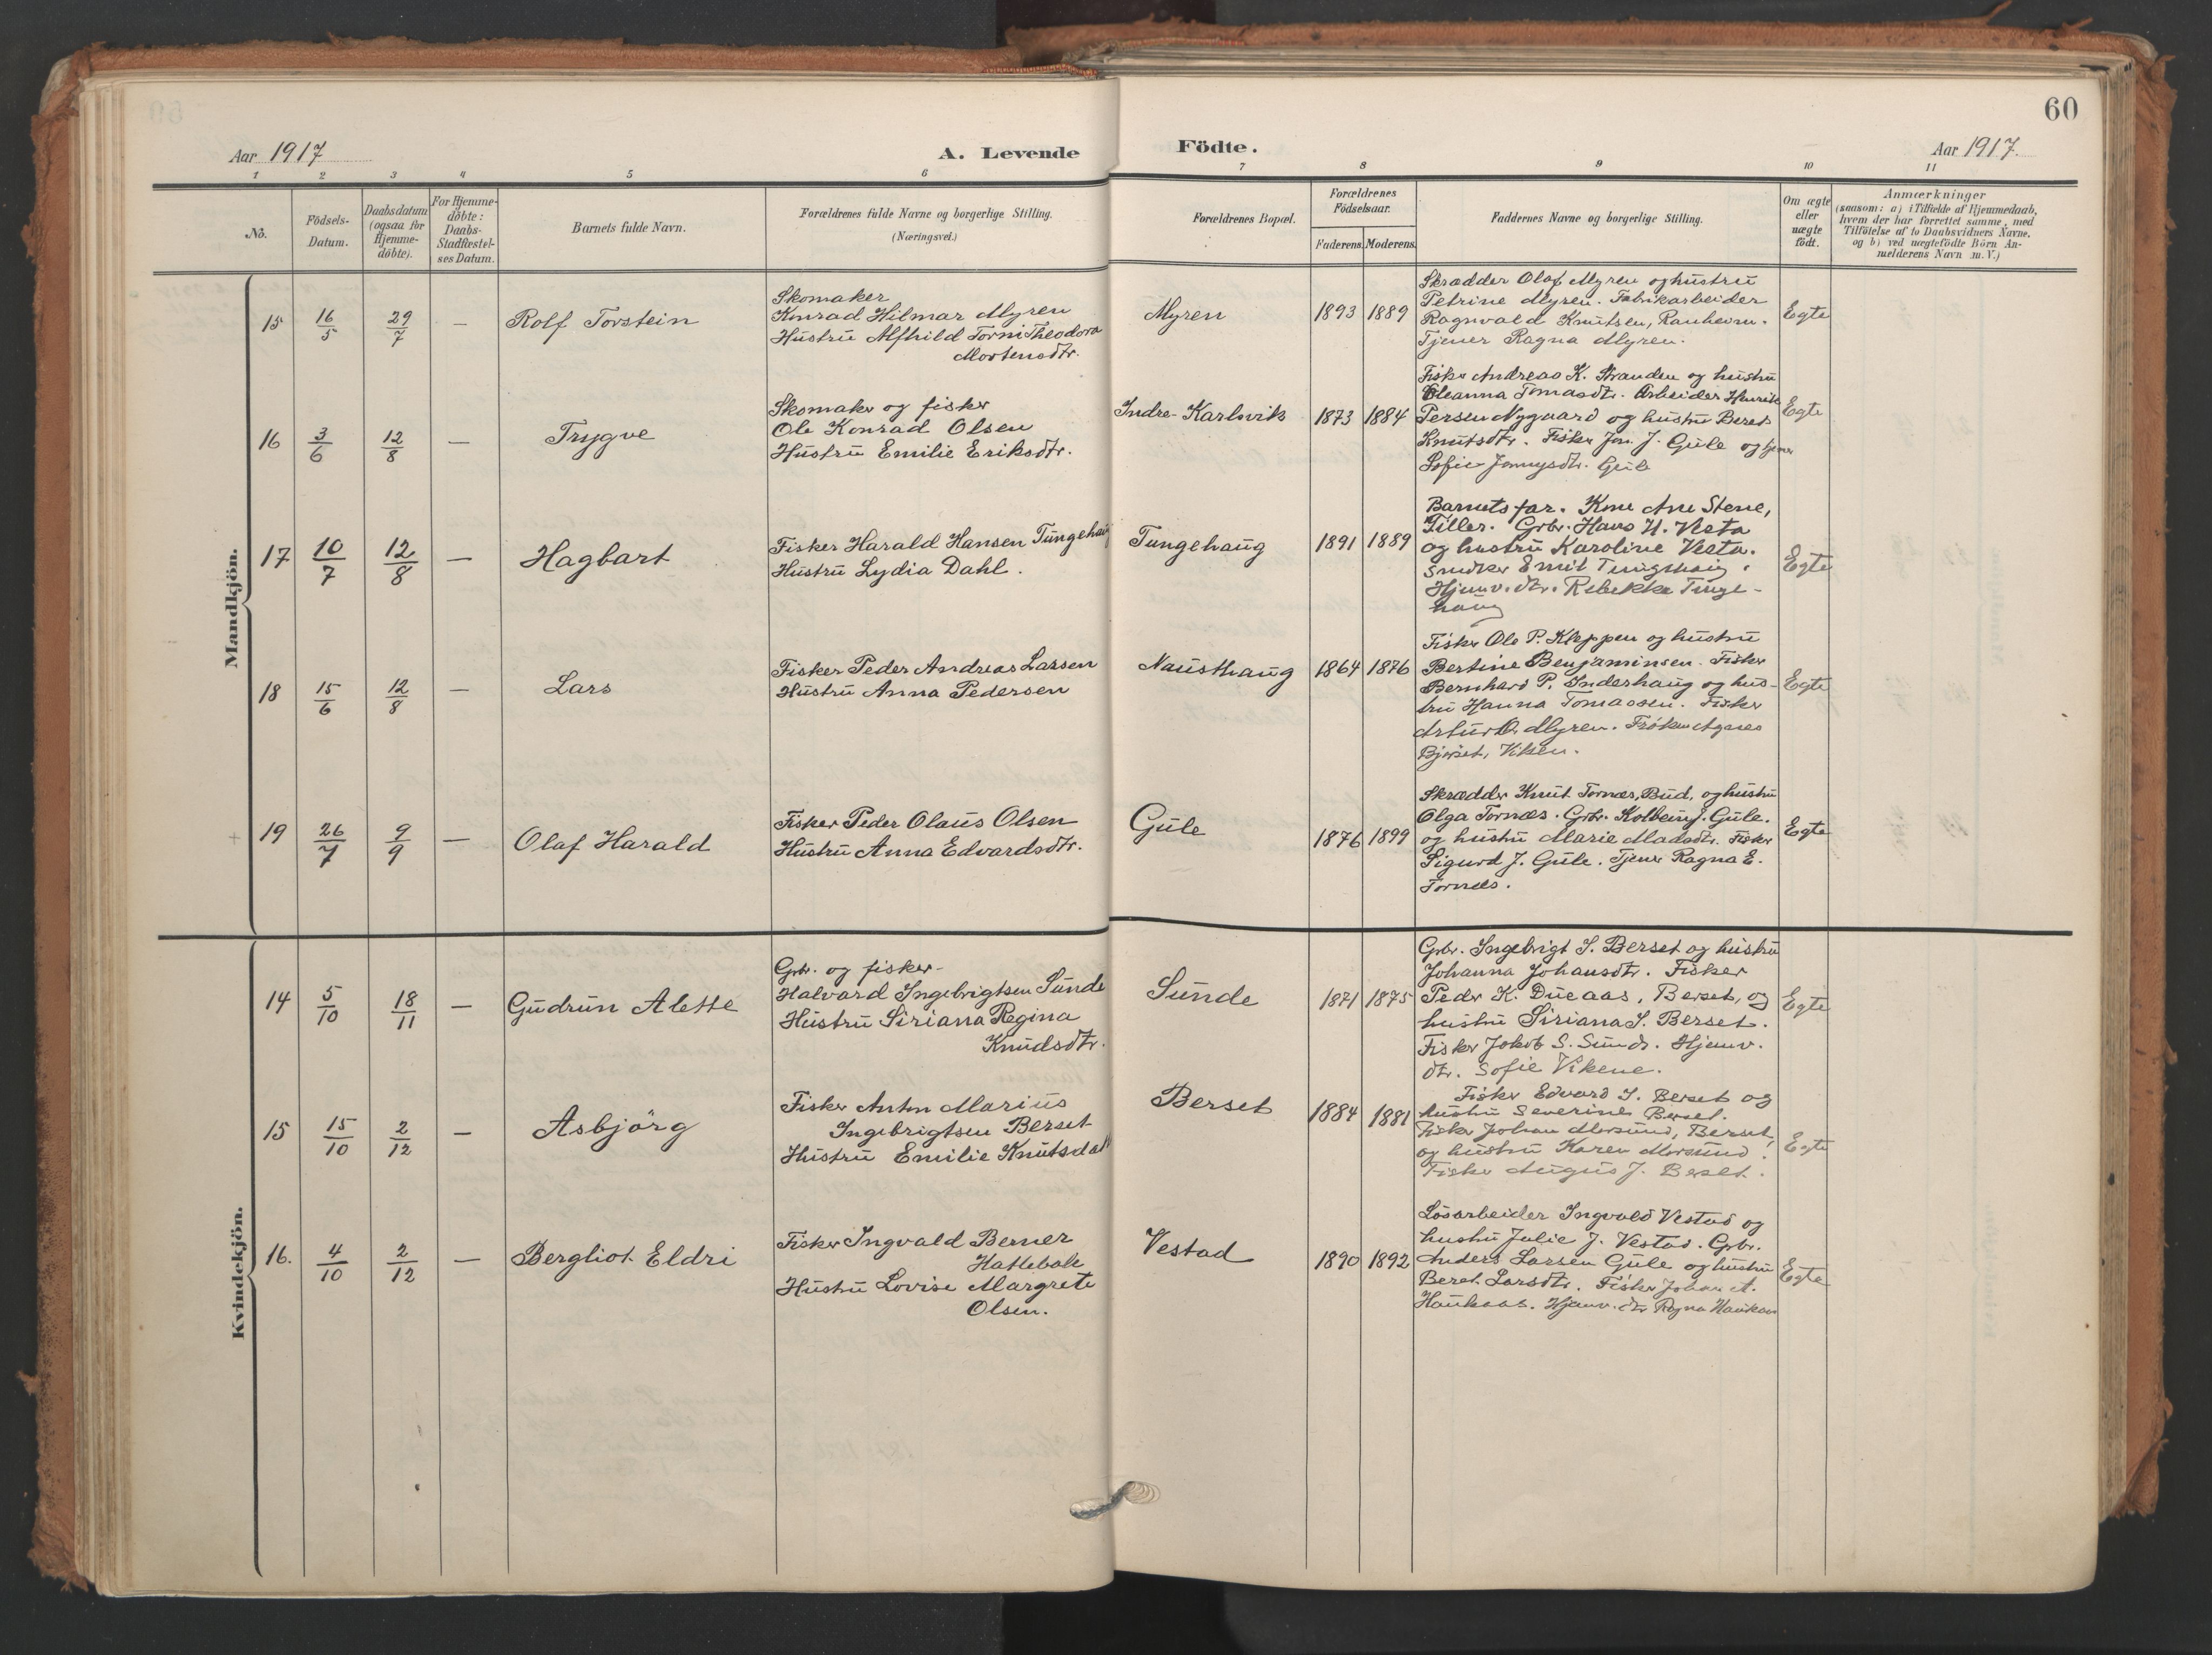 60
Aar 1917
A. Levende Födte.
Aar 1917.
1 2 3 4 5 6 7 8 9 10 11
No.
Födsels-
Datum.
Daabsdatum
(ogsaa för
Hjemme-
döbte).
For Hjemme-
döbte:
Daabs-
Stadfæstel-
ses Datum.
Barnets fulde Navn.
Forældrenes fulde Navne og borgerlige Stilling.
(Næringsvei.)
Forældrenes Bopæl.
Forældrenes
Födselsaar.
Faderens. Moderens.
Faddernes Navne og borgerlige Stilling.
Om ægte
eller
uægte
födt.
Anmærkninger
(saasom: a) i Tilfælde af Hjemmedaab,
hvem der har forrettet samme, med
Tilföielse af to Daabsvidners Navne,
og b) ved uægtefödte Börn An-
melderens Navn m. V.)
Mandkjön.
15 16/5 29/7 — Rolf Torstein
Skomaker
Konrad Hilmar Myren
Hustru Alfhild Torni Theodora
Mortensdtr.
Myren
1893 1889
Skrædder Olaf Myren og hustru
Petrine Myren. Fabrikarbeider
Ragnvald Knutsen, Ranheim.
Tjener Ragna Myren.
Egte
16 3/6 12/8 — Trygve
Skomaker og fisker
Ole Konrad Olsen
Hustru Emilie Eriksdtr.
Indre-Karlsvik
1873 1884
Fisker Andreas K. Stranden og hustru
Oleanna Tomasdtr. Arbeider Henrik
Persen Nygaard og hustru Beret
Knutsdtr. Fisker Jon J. Gule og tjener
Sofie Gule
Egte
17 10/7 12/8 — Hagbart
Fisker Harald Hansen Tungehaug
Hustru Lydia Dahl.
Tungehaug
1891 1889
Barnets far. Kone Ane Stene,
Tiller. Grbr. Hans H. Vesta
og hustru Karoline Vesta.
Snedker Emil Tungehaug.
Hjemv. dtr. Rebekka Tunge-
haug
Egte
18 15/6 12/8 — Lars
Fisker Peder Andreas Larsen
Hustru Anna Pedersen
Nausthaug
1864 1876
Fisker Ole P. Kleppen og hustru
Bertine Benjaminsen. Fisker
Bernhard P. Inderhaug og hus-
tru Hanna Tomassen. Fisker
Artur O. Myren. Fröken Agnes
Bjerset, Viken.
Egte
19 26/7 9/9 — Olaf Harald
Fisker Peder Olaus Olsen
Hustru Anna Edvardsdtr.
Gule
1876 1899
Skrædder Knut Tornes, Bud, og hustru
Olga Tornæs. Grbr. Kolbein J. Gule.
og hustru Marie Madsdtr. Fisker
Sigurd J. Gule. Tjener Ragna E.
Tornæs.
Egte
Kvindekjön.
14 5/10 18/11 — Gudrun Alette
Grbr. og fisker-
Halvard Ingebrigtsen Sunde
Hustru Siriana Regina
Knudsdtr.
Sunde
1871 1875
Grbr. Ingebrigt I. Berset og hustru
Johanna Johansdtr. Fisker
Peder K. Dueaas, Berset, og
hustru Siriana I. Berset.
Fisker Jakob S. Sunde. Hjemv.
dtr. Sofie Vikene.
Egte
15 15/10 2/12 — Asbjörg
Fisker Anton Marius
Ingebrigtsen Berset
Hustru Emilie Knutsdatt
Berset
1884 1881
Fisker Edvard I. Berset og
hustru Severine Berset.
Fisker Johan Morsund, Berset,
og hustru Karen Morsund.
Fisker August J. Berset.
Egte
16. 4/10 2/12 — Bergliot Eldri
Fisker Ingvald Berner
Hatlebak
Hustru Lovise Margrete
Olsen.
Vestad
1890 1892
Lösarbeider Ingvald Vestad og
hustru Julie J. Vestad. Grbr.
Anders Larsen Gule og hustru
Beret Larsdtr. Fisker Johan A.
Haukaas. Hjemv. dtr. Ragna Haukaas
Egte